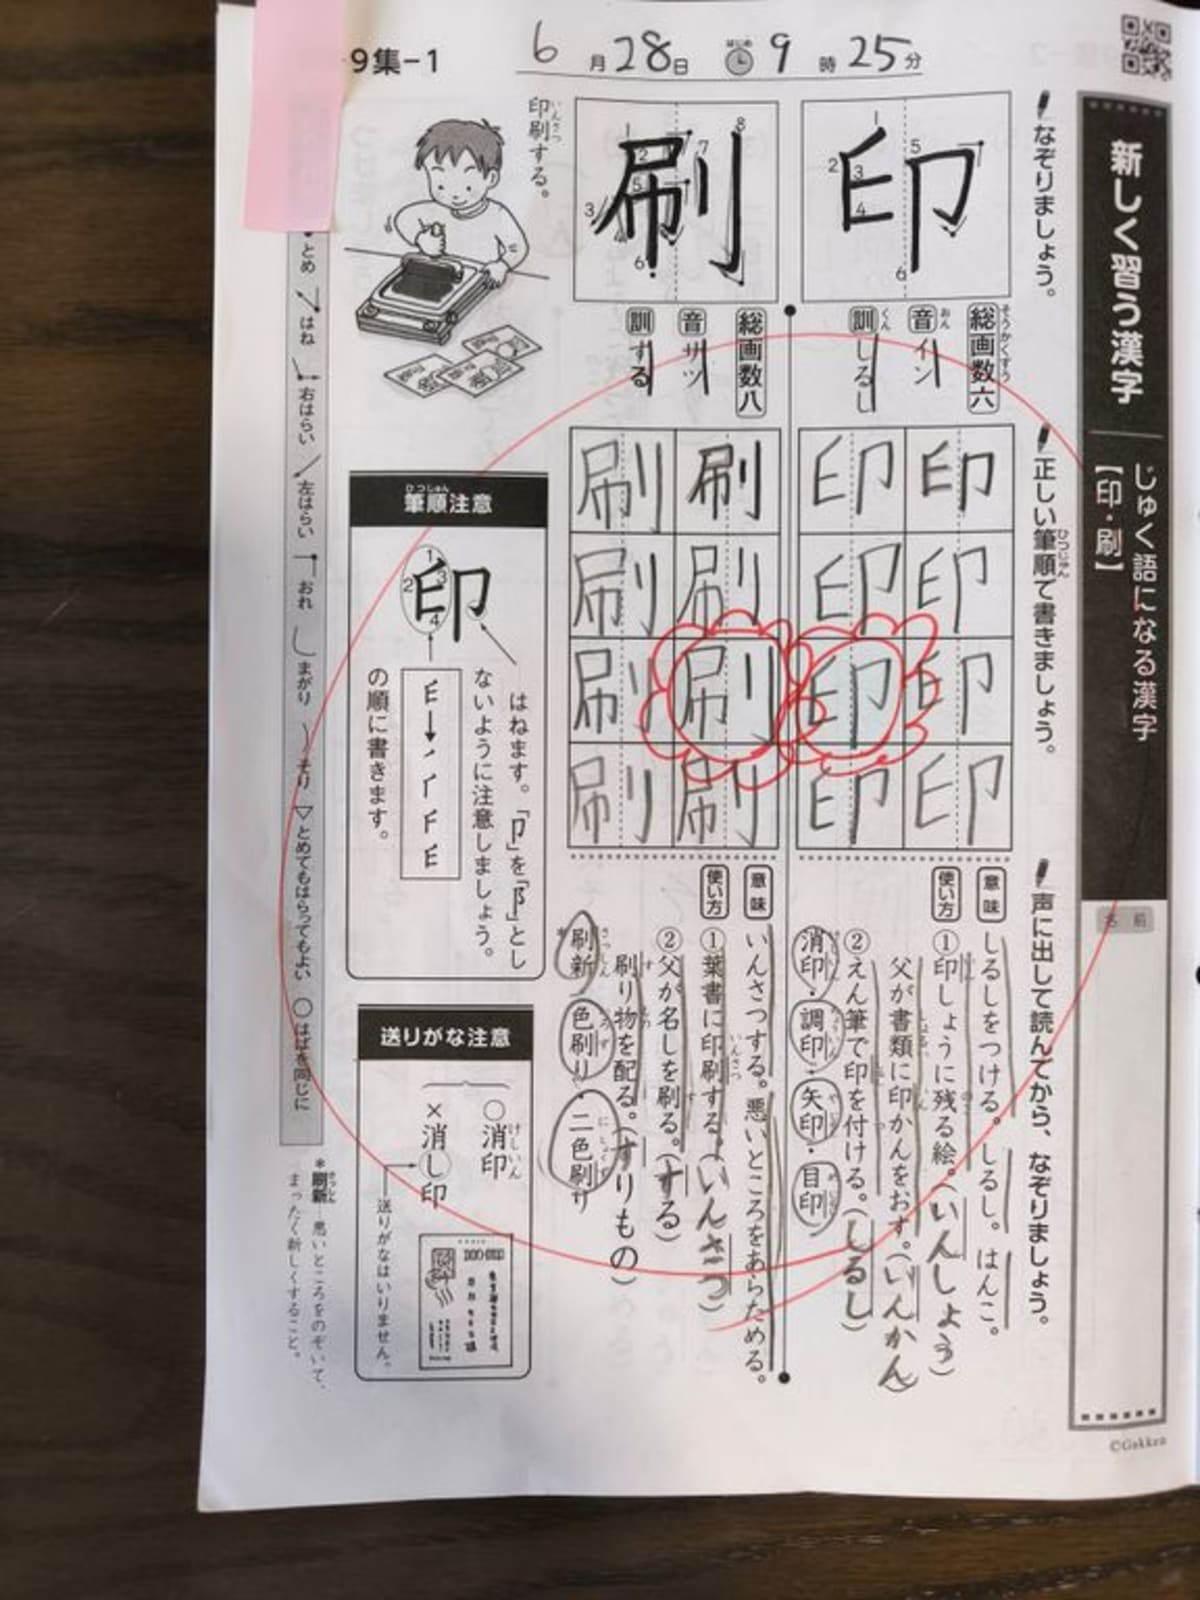 9集-1
6月28日 はじめ 9時25分
新しく習う漢字
じゅく語になる漢字
【印・刷】
名前
なぞりましょう。
正しい筆順で書きましょう。
ひつじゅん
声に出して読んでから、なぞりましょう。
印
総画数六
そうかくすう
音 イン
おん
訓 しるし
くん
印 印 印 印
印 印 印 印
意味
しるしをつける。しるし。はんこ。
使い方
①印しょうに残る絵。(いんしょう)
父が書類に印かんをおす。(いんかん)
②えん筆で印を付ける。(しるし)
消印・調印・矢印・目印
刷
総画数八
音 サツ
訓 する
刷 刷 刷 刷
刷 刷 刷 刷
意味
いんさつする。悪いところをあらためる。
使い方
①葉書に印刷する。(いんさつ)
②父が名しを刷る。(する)
刷り物を配る。(すりもの)
*刷新・色刷り・二色刷り
印刷する。
いんさつ
筆順注意
ひつじゅん
印
はねます。「卩」を「阝」とし
ないように注意しましょう。
の順に書きます。
送りがな注意
○消印
けしいん
×消し印
送りがなはいりません。
とめ はね 右はらい 左はらい おれ まがり そり とめてもはらってもよい はばを同じに
*刷新…悪いところをのぞいて、
まったく新しくすること。
©Gakken